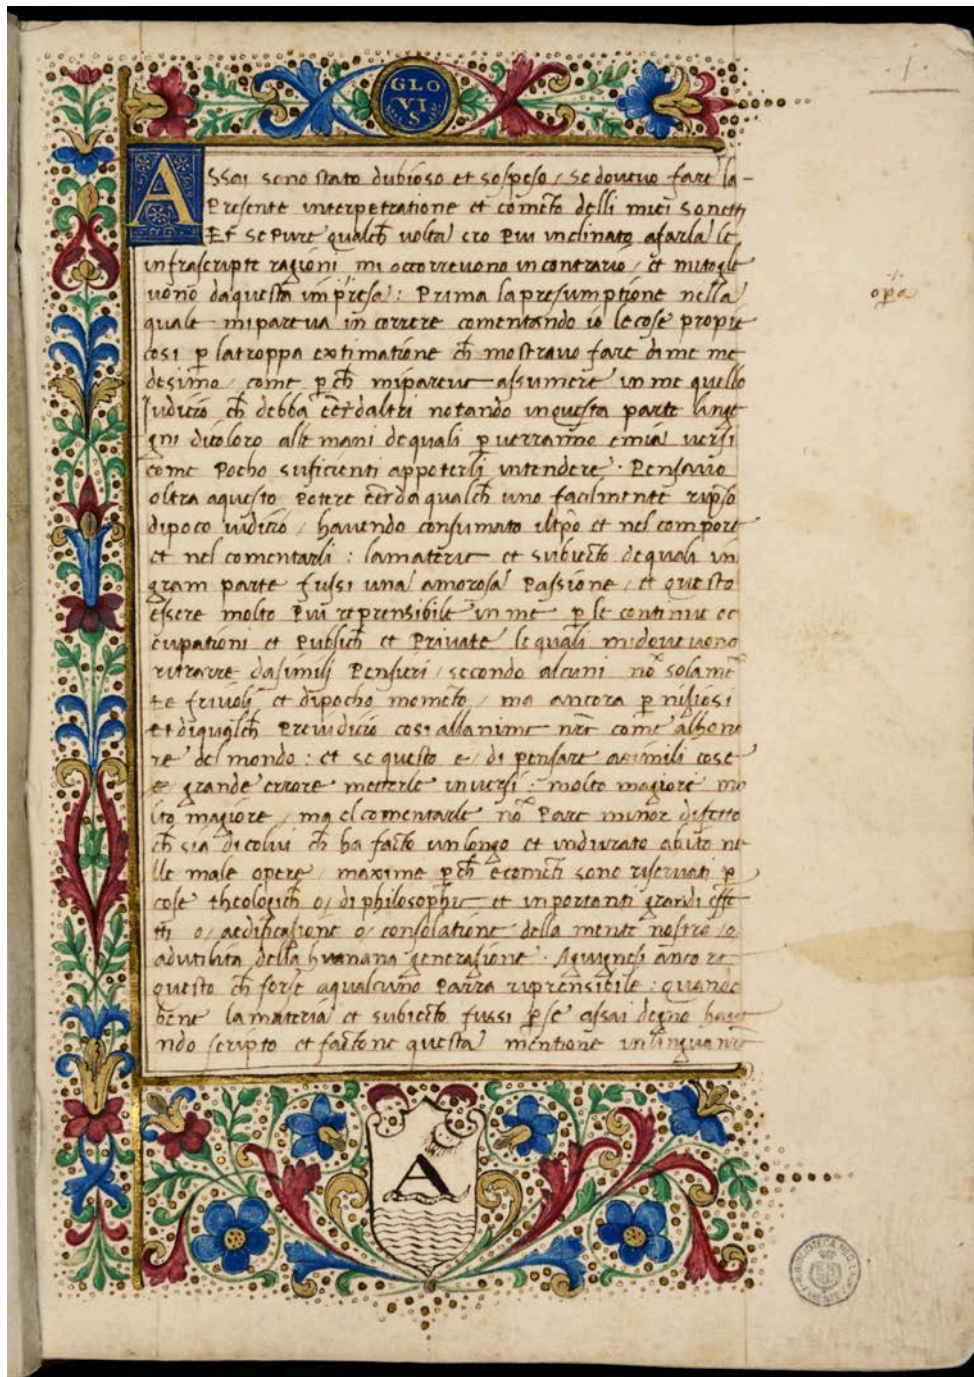 ·1·
GLO
VI
S
Assai sono stato dubioso et sospeso / se dovevo fare la-
Presente interpetratione et comẽto delli miei sonetti
Et se Pure qualch̃ volta ero Piu inclinato afarla le
infrascripte ragioni mi occorrevono in contrario / et mitogle
vono daquesta impresa : Prima la presumptione nella
quale mipareva in correre comentando io le cose proprie
cosi p̱ latroppa extimatione ch̃ mostravo fare di me me
desimo / come p̱ ch̃ mipareve assumere in me quello
Iudicio ch̃ debba eẽr daltri notando inquesta parte linge
gni dicoloro alle mani dequali p̱ verranno emia versi
come Pocho suficienti appoterlj intendere · Pensavo
oltra aquesto Potere eẽr da qualch̃ uno facilmente rip̃so
dipoco iudicio / havendo consumato iltp̃o et nel comporre
et nel comentarli : lamaterie et subiecto dequali in
gram parte fussi una amorosa Passione / et questo
essere molto Piu reprensibile in me p̱ le continue oc
cupationi et Publich̃ et Private le quali midovevono
ritrarre dasimilj Pensieri / secondo alcuni nõ solamẽ
te frivolj et dipocho momẽto / ma ancora p̱ nitiosi
et diqualch̃ Preiudicio cosi allanime nr̃e come alhono
re del mondo : et se questo e / di pensare asimili cose
e grande errore metterle inversi : molto magiore mo
lto magiore / ma el comentarle nõ Pare minor difetto
ch̃ sia dicolui ch̃ ha facto unlongo et indurato abito ne
lle male opere / maxime p̱ ch̃ ecomẽti sono riservati p̱
cose theologich̃ o / di philosophie et inportanti grandi effe
tti o / aedificatione o / consolatione della mente nostra / o
adutilita della humana generatione · Agiugnesi ancore
questo ch̃ forse aqualcuno Parra riprensibile : quando
bene lamateria et subiecto fussi p̱ se assai degno have
ndo scripto et factone questa mentione inlingua nr̃e
op̃a
A